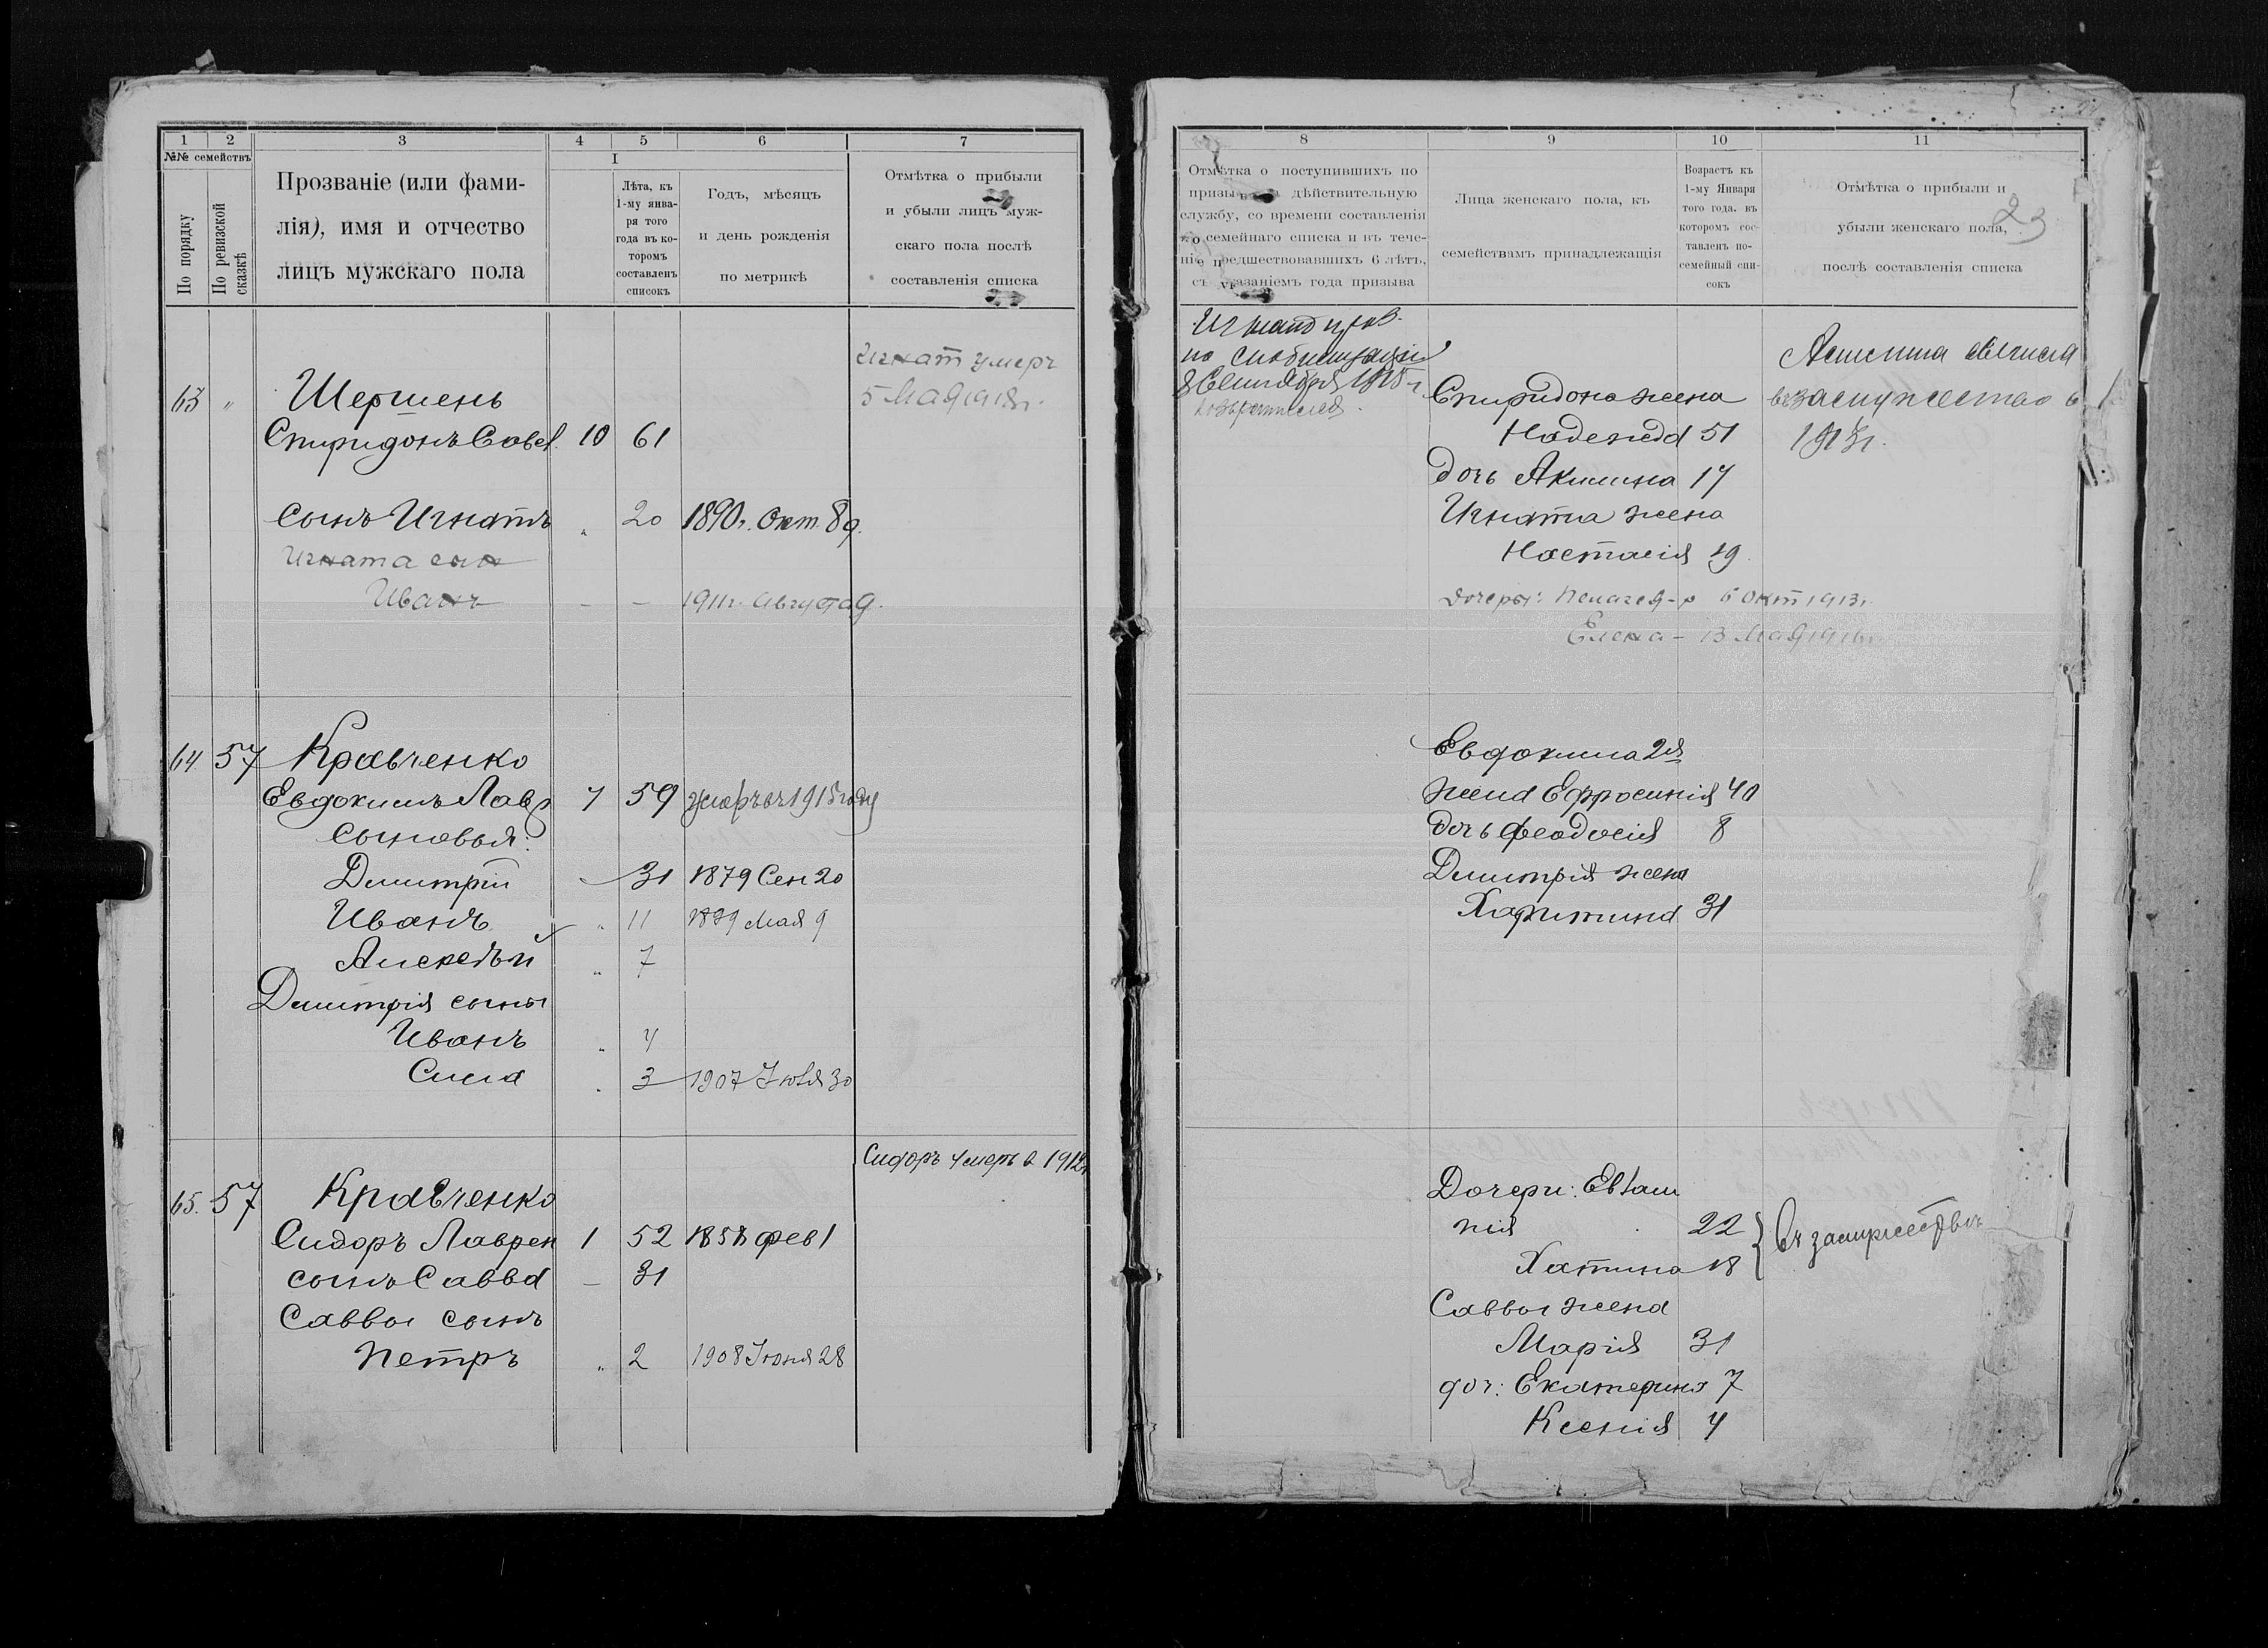 1 2 3 4 5 6 7
№№ семействъ
По порядку
По ревизской сказкѣ
Прозваніе (или фами-
лія), имя и отчество
лицъ мужскаго пола
I
Лѣта, къ
1-му янва-
ря того
года въ ко-
торомъ
составленъ
списокъ
Годъ, мѣсяцъ
и день рожденія
по метрикѣ
Отмѣтка о прибыли
и убыли лицъ муж-
скаго пола послѣ
составленія списка
Игнат умеръ
5 Мая
63 " Шершень
Спиридонъ Савел. 10 61
сынъ Игнатъ " 20 1890г. Окт. 8д.
Игната сын
Иванъ - - 1911г. Августа 9.
64 57 Кравченко
Евдокимъ Лавр 7 59 умеръ въ 1915 году
сыновья:
Димитрій 31 1879 Сен 20
Иванъ " 11 1899 Мая 9
Алексѣй " 7
Димитрія сыны
Иванъ " 4
Сила " 3 1907 Іюля 30
Сидоръ умеръ в 1912г
65. 57 Кравченко
Сидоръ Лаврен 1 52 1858 фев 1
сынъ Савва - 31
Саввы сынъ
Петръ " 2 1908 Іюня 28
8 9 10 11
Отмѣтка о поступившихъ по
призыву на дѣйствительную
службу, со времени составленія
по семейнаго списка и въ тече-
ніе предшествовавшихъ 6 лѣтъ,
съ указаніемъ года призыва
Лица женскаго пола, къ
семействамъ принадлежащія
Возрастъ къ
1-му Января
того года, въ
которомъ сос-
тавленъ по-
семейный спи-
сокъ
Отмѣтка о прибыли и
убыли женскаго пола,
послѣ составленія списка
23
Игнатъ
по мобилизаціи
8 Сентября 1915 г
возвратился.
Спиридона жена
Надежда 51
дочь Акилина 17
Игната жена
Настасія 19
дочеры: Пелагея-р 6 окт 1913г
Елена - 13 Мая 1916г.
Акилина вышла
въ замужество в
1913г.
Евдокима 2я
жена Ефросинія 40
дочь Феодосія 8
Димитрія жена
Харитина 31
Дочери: Евгам
нія 22
Хатина 18
въ замужествѣ
Саввы жена
Марія 31
доч: Екатерина 7
Ксенія 4